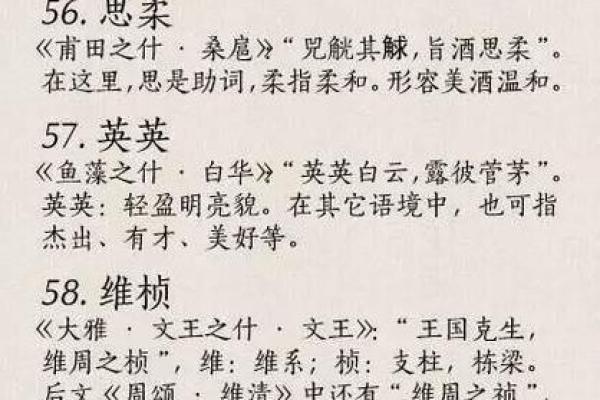 56. 思柔
《甫田之什 · 桑扈》：“兕觥其觩，旨酒思柔”。
在这里，思是助词，柔指柔和。形容美酒温和。
57. 英英
《鱼藻之什 · 白华》：“英英白云，露彼菅茅”。
英英：轻盈明亮貌。在其它语境中，也可指
杰出、有才、美好等。
58. 维桢
《大雅 · 文王之什 · 文王》：“王国克生，
维周之桢”，维：维系；桢：支柱，栋梁。
后文《周颂 · 维清》中还有“维周之祯”，